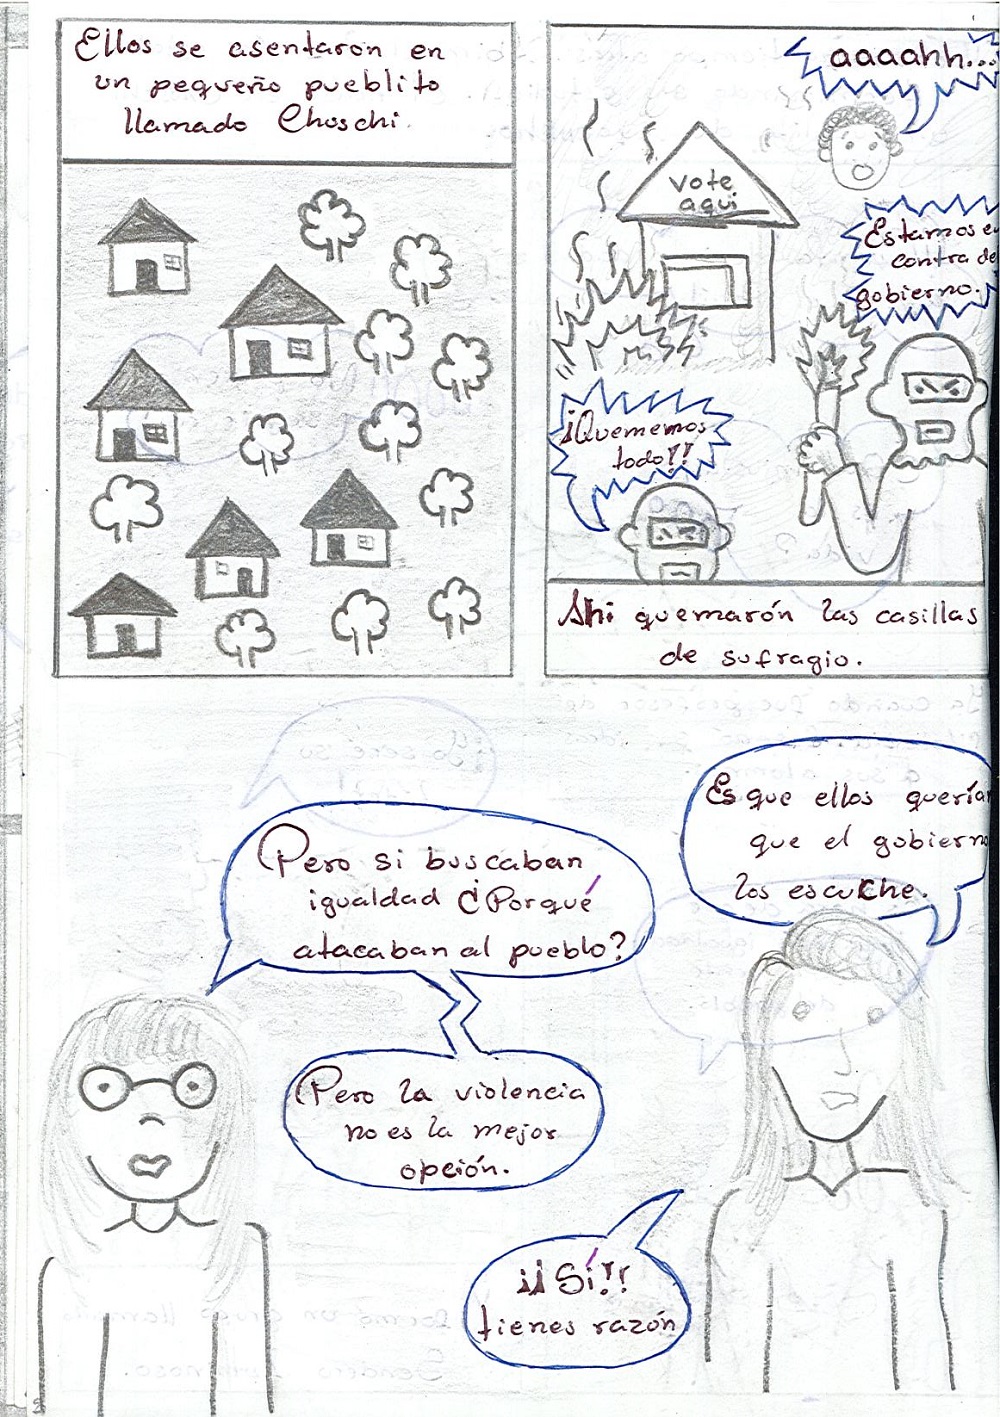 Ellos se asentarón en
un pequeño pueblito
llamado Choschi.
aaaahh...
vote
aqui
Estamos en
contra de
gobierno.
¡Quememos
todo!!
Ahi quemarón las casillas
de sufragio.
Es que ellos querían
que el gobierno
los escuche.
Pero si buscaban
igualdad ¿Porqué
atacaban al pueblo?
Pero la violencia
no es la mejor
opción.
¡¡Sí!!
tienes razón